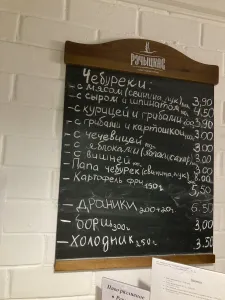 Чебуреки:
- с мясом (свинина, лук) 3,90
- с сыром и шпинатом 4.50
- с курицей и грибами 3,90
- с грибами и картошкой 3,00
- с чечевицей 3,00
- с яблоками 3,00
- с вишней 3,00
- Папа чебурек (свинина, лук)
- Картофель фри 150г 5,50
- Драники 200+20г. 6.50
- Борщ 300г 3,00
- Холодник 250г. 3.50